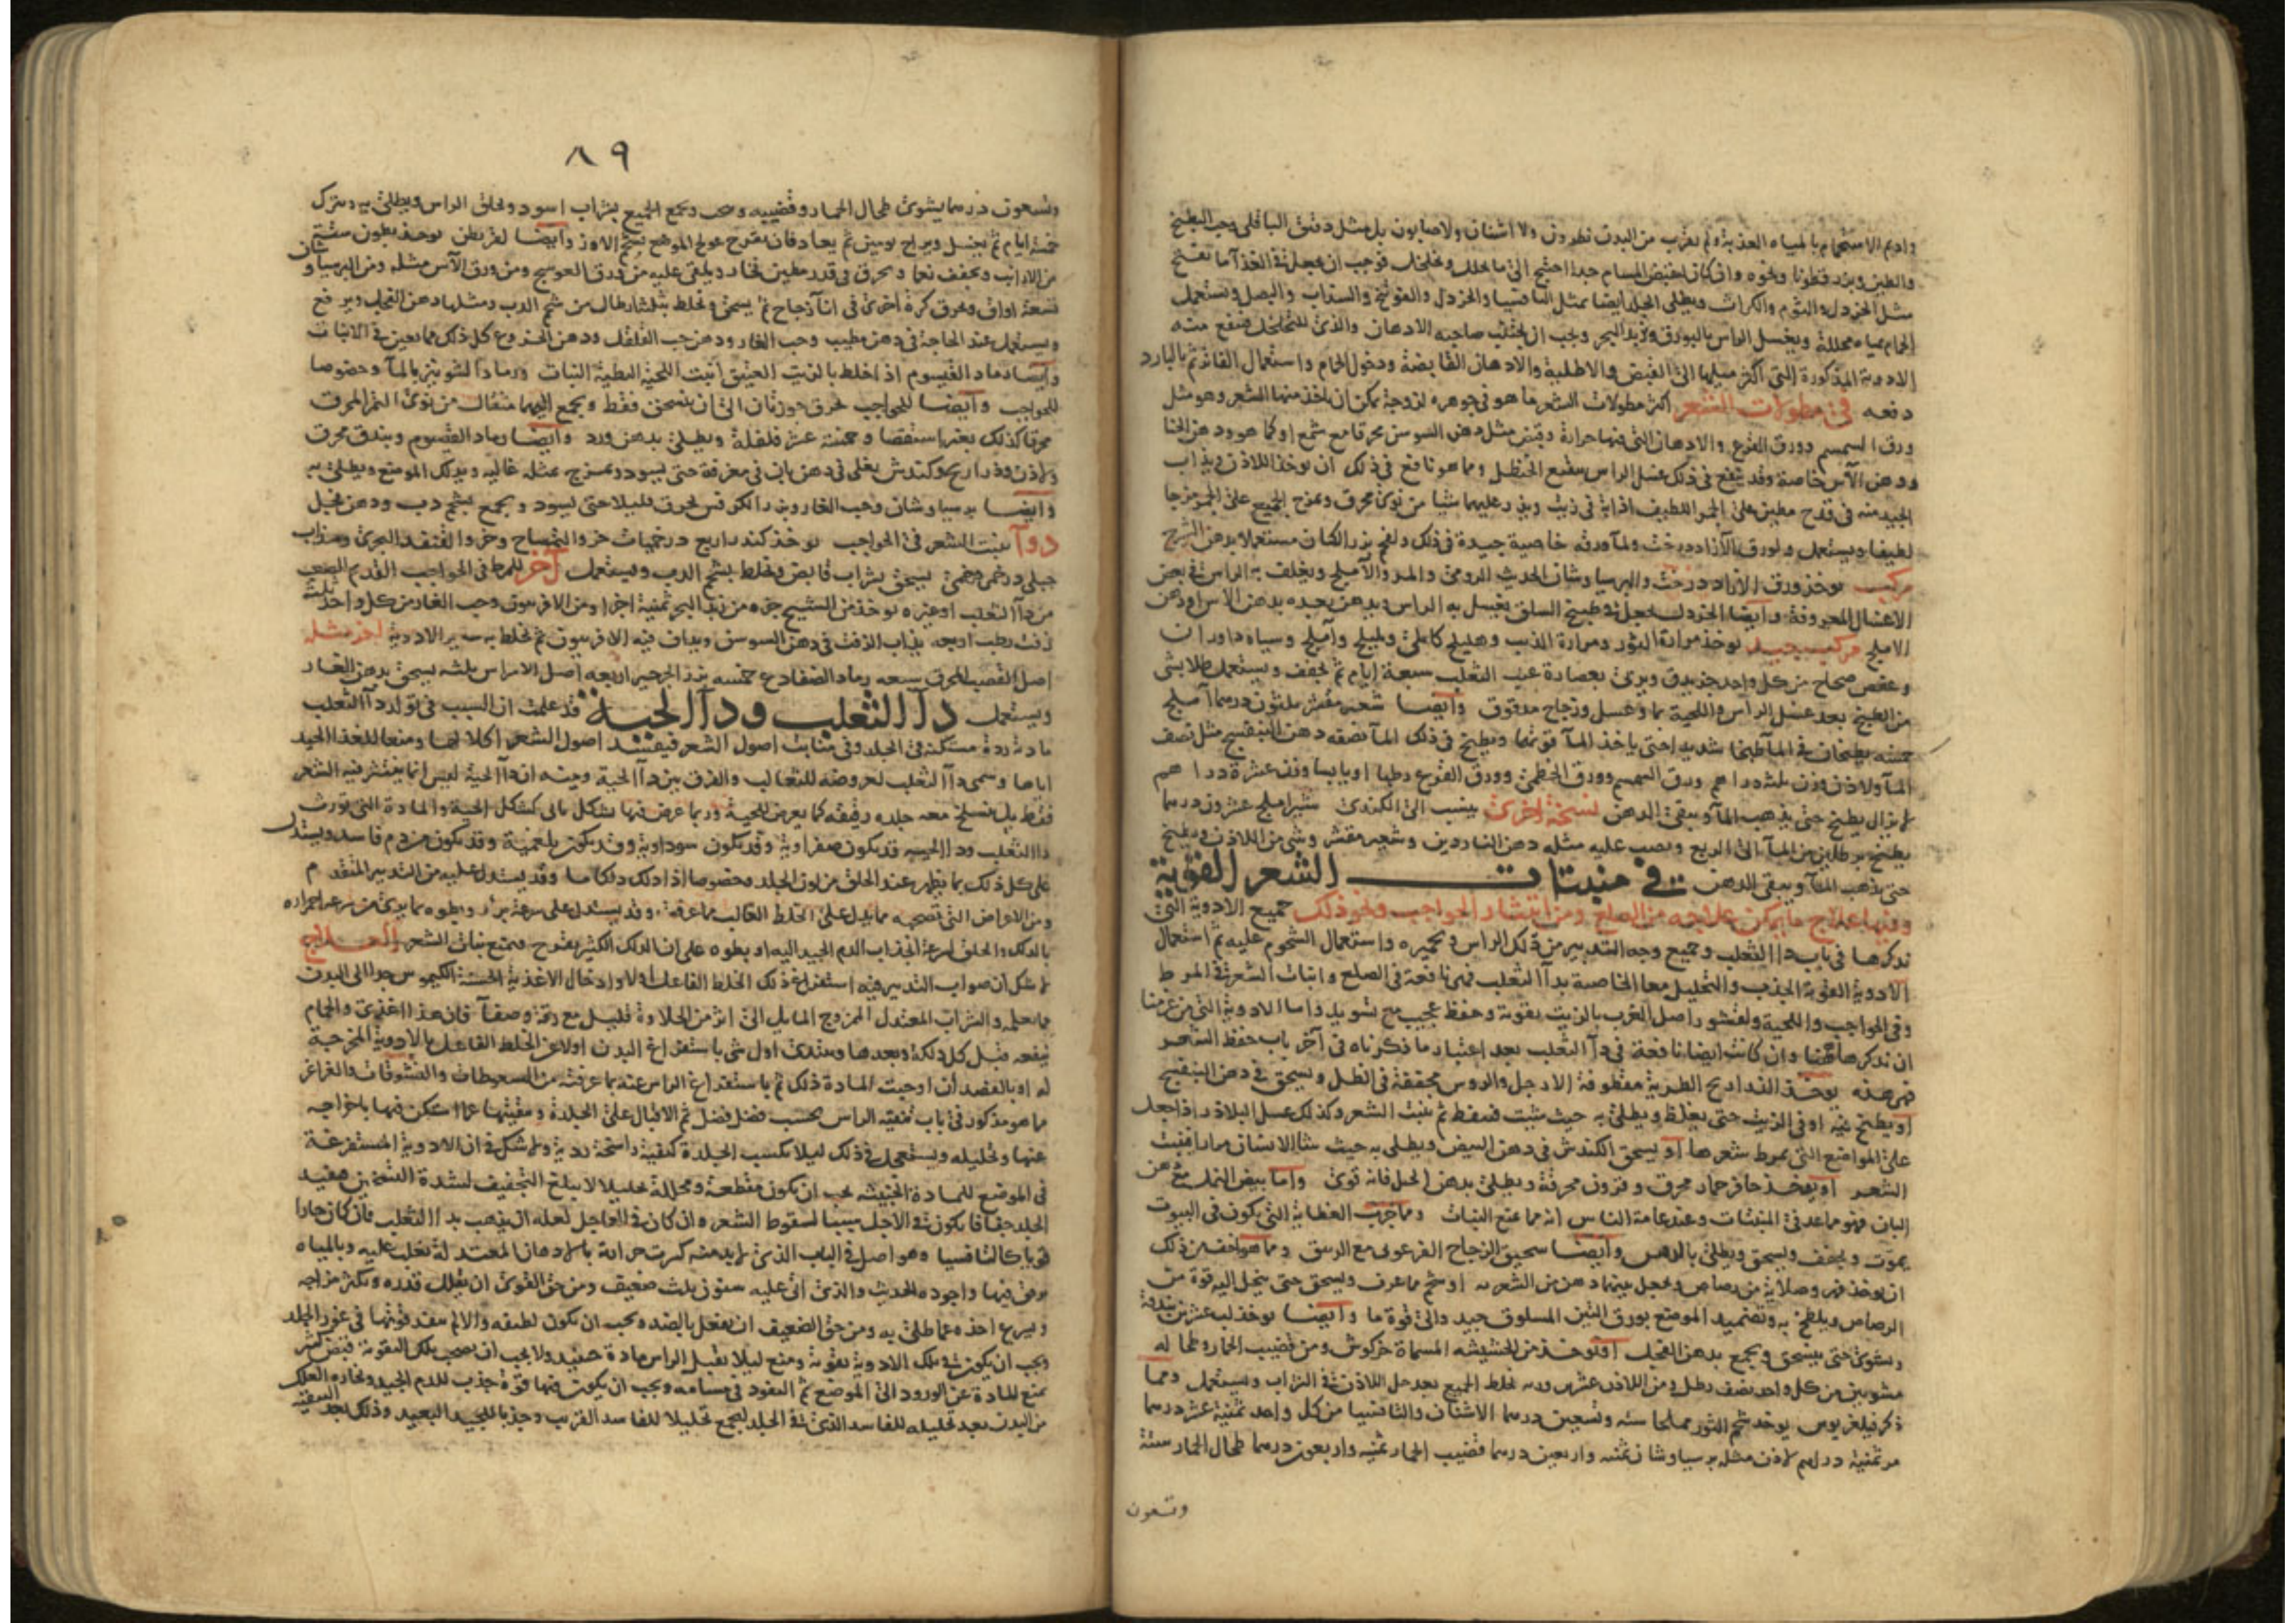 وادم الاستحمام بالمياه العذبة ولم يقرب من البدن نطرون ولا اشنان ولا صابون بل مثل دقيق الباقلى وحب البطيخ
والطين وبزر قطونا ونحوه وان كان لقبض المسام جدا احتيج الى ما يحلل ويخلخل فوجب ان يجعل في الغذا ما يفتح
مثل الخردل والثوم والكراث ويطلى الجلد ايضا بمثل الثافسيا والخردل والفوتنج والسذاب والبصل ويستعمل
الحمام بمياه محللة ويغسل الراس بالبورق وزبد البحر ويجب ان يجتنب صاحبه الادهان والذى للتخلخل فينفع منه
الادوية المذكورة التى اكثر ميلها الى القبض والاطلية والادهان القابضة ودخول الحمام واستعمال الفاتر ثم بالبارد
دفعه في مطولات الشعر اكثر مطولات الشعر ما هو في جوهره لزوجة يمكن ان ياخذ منها الشعر وهو مثل
ورق السمسم وورق القرع والادهان التى فيها حرارة وقبض مثل دهن السوسن محرقا مع شمع او كما هو ودهن الحنا
ودهن الآس خاصة وقد ينفع في ذلك غسل الراس بنقيع الحنظل ومما هو نافع في ذلك ان يوخذ اللاذن ويذاب
الجيد منه في قدح مطين على الجمر اللطيف اذابة في زيت ويذر عليهما شيا من نوى محرق ويمزج الجميع على الجمر مزجا
لطيفا ويستعمل ولورق الآزاددرخت ولمآ ورقه خاصية جيدة في ذلك ولقح بزر الكتان مستعملا بدهن الشيرج
مركب يوخذ ورق الازاددرخت والبرسياوشان الحديث الرومى والمر والآملج ويغلف به الراس في بعض
الامليج مركب جيد يوخذ مرارة الثور ومرارة الذيب وهليلج كابلى وبليلج وآملج وسياه داوران
وعفص صحاح من كل واحد جزء يدق ويربى بعصارة عنب الثعلب سبعة ايام ثم يجفف ويستعمل طلا بشى
من الطبيخ بعد غسل الراس واللحية بما وعسل وزجاج مدقوق وايضا شعير مقشر ثلثون درهما آملج
خمسه يطبخان في المآ طبخا شديدا حتى ياخذ المآ قوتهما ويطبخ في ذلك المآ نصفه دهن البنفسج مثل نصف
المآ ولاذن وزن ثلثه دراهم وورق السمسم وورق الخطمى وورق القرع رطبا او يابسا وزن عشرة دراهم
لا يزال يطبخ حتى يذهب المآ ويبقى الدهن نسخة اخرى ينسب الى الكندى شير املج عشرون درهما
يطبخ برطلين من المآ الى الربع ويصب عليه مثله دهن الناردين وشعير مقشر وشى من اللاذن ويطبخ
حتى يذهب المآ ويبقى الدهن في منبتات الشعر القوية
وفيها علاج ما يمكن علاجه من الصلع ومن انتشار الحواجب ونحو ذلك جميع الادوية التى
نذكرها في باب داا الثعلب وجميع وجه التدبير من ذلك الراس وتحميره واستعمال الشحوم عليه ثم استعمال
الادوية القوية الجذب والتحليل معا الخاصية بدآ الثعلب فهى نافعة في الصلع وانبات الشعر في المرط
وفي الحواجب واللحية ولقشور اصل الغرب بالزيت تقوية وحفظ عجيب مع تسويد واما الادوية التى من غرضنا
ان نذكرها ههنا وان كانت ايضا نافعة في دآ الثعلب بعد اعتبار ما ذكرناه في آخر باب حفظ الشعر
فهى هذه يوخذ الذراريح الطرية مقطوفة الارجل والروس مجففة في الظل ويسحق في دهن البنفسج
او يطبخ فيه او في الزيت حتى يغلظ ويطلى به حيث يثبت فينفط ثم ينبت الشعر وكذلك عسل البلاذر اذا جعل
على المواضع التى يمرط شعرها او يسحق الكندش في دهن البيض ويطلى به حيث شا الانسان مرارا فينبت
الشعر او يوخذ حافر حمار محرق وقرون محرقة ويطلى بدهن الحل فانه قوى واما بيض النمل مع دهن
البان فهو مما عد في المنبتات وعند عامة الناس انه مما يمنع النبات ومما جرب العظاية التى يكون في البيوت
يموت ويجفف ويسحق ويطلى بالدهن وايضا سحيق الزجاج الفرعونى مع الزيبق ومما هو اخف من ذلك
ان يوخذ فهر وصلاية من رصاص ويجعل بينهما دهن من الشعر به او شحم مما عرف ويسحق حتى ينحل اليه قوة من
الرصاص ويلطخ به وتضميد الموضع بورق التين المسلوق جيد والى قوة ما وايضا يوخذ لب عشرين بندقة
ويشوى حتى ينسحق ويجمع بدهن الفجل او يوخذ من الحشيشه المسماة خركوش ومن قضيب الحمار وطحاله
مشويين من كل واحد نصف رطل ومن اللاذن عشرين درهم يخلط الجميع بعد حل اللاذن في الشراب ويستعمل ومما
ذكر فيلغريوس يوخذ شحم الثور مملحا سته وتسعين درهما الاشنان والثافسيا من كل واحد ثمنية عشر درهما
مر ثمنية دراهم لاذن مثله برسياوشان ثمنه واربعين درهما قضيب الحمار ثمنيه واربعون درهما طحال الحمار ستة
وتسعون
٨٩
وتسعون درهما يشوى طحال الحمار وقضيبه وسحق وجمع الجميع بشراب اسود وحلق الراس ويطلى به ويترك
خمسة ايام ثم يغسل ويراح يومين ثم يعاد فان تقرح عولج الموضع بشحم الاوز وايضا لقريطن يوخذ بطون ستة
من الارانب ويجفف نعما ويحرق في قدر مطين فخار ويلقى عليه من ورق العوسج ومن ورق الآس مثله ومن البرسياوشان
تسعة اواق ويحرق كرة اخرى في انآ زجاج ثم يسحق ويخلط بثلثة ارطال من شحم الدب ومثلها دهن الفجل ويرفع
ويستعمل عند الحاجة في دهن مطيب وحب الغار ودهن حب الفلفل ودهن الخروع كل ذلك مما يعين في الانبات
وايضا رماد القيسوم اذا خلط بالزيت العتيق انبت اللحية البطية النبات ورماد الشونيز بالمآ وخصوصا
للحواجب وايضا للحواجب يحرق جوزتان الى ان ينسحق فقط ويجمع اليهما مثقال من نوى التمر المحرق
محرقا كذلك بغير استقصا وخمسة عشر فلفلة ويطلى بدهن ورد وايضا رماد القيسوم وبندق محرق
ولاذن وذراريح وكندش يغلى في دهن بان في مغرفة حتى يسود ويمزج بمثله غاليه ويدلك الموضع ويطلى به
وايضا برسياوشان وحب الغار وبزر الكرفس يحرق قليلا حتى يسود ويجمع بشحم دب ودهن فجل
دوآ ينبت الشعر في الحواجب يوخذ كندر اربع درخميات خرو التمساح وخرو القنفذ البحرى وسذاب
جبلى درخمى درخمى يسحق بشراب قابض ويخلط بشحم الدب ويستعمل آخر للمرط في الحواجب القديم الصعب
من دآ الثعلب او غيره يوخذ من الشيح جزء من زبد البحر ثمنية اجزا ومن الافربيون وحب الغار من كل واحد ثلثة
زفت رطب اربعه يذاب الزفت في دهن السوسن ويداف فيه الافربيون ثم يخلط به سير الادوية اخر مثله
اصل القصب المحرق سبعه رماد الضفادع خمسه بزر الجرجير اربعه اصل الامراس ثلثه يسحق بدهن الغار
ويستعمل دآ الثعلب ودآ الحية قد علمت ان السبب في تولد دآ الثعلب
مادة ردية مستكنة في الجلد وفي منابت اصول الشعر فيفسد اصول الشعر اكلا لها ومنعا للغذا الجيد
اياها وسمى دآ الثعلب لعروضه للثعالب والفرق بين دآ الحية وبينه ان دآ الحية ليس انما ينتثر فيه الشعر
فقط بل ينسلخ معه جلده رقيقه كما يعرض للحية وربما عرض فيها تشكل ماى كشكل الحية والمادة التى تورث
داا الثعلب وداا الحيه قد يكون صفراوية وقد يكون سوداوية وقد يكون بلغمية وقد يكون من دم فاسد ويستدل
على كل ذلك بما يظهر عند الحلق من لون الجلد وخصوصا اذا دلك دلكا ما وقد يستدل عليه من التدبير المتقدم
ومن الاعراض التى تصحبه مما يدل على الخلط الغالب مما عرفته وقد يستدل على سرعة برؤه وبطوه بما يرى من سرعه احمراره
بالدلك والحلق لسرعة انجذاب الدم الجيد اليه او بطوه على ان الدلك الكثير يقرح فيمنع نبات الشعر العلاج
لا شك ان صواب التدبير فيه استفراغ ذلك الخلط الفاعل اولا وادخال الاغذية الحسنة الكيموس جدا الى البدن
مما يعلمه والشراب المعتدل الممزوج المايل الى اثر من الحلاوة قليل مع رقة وصفآ فان هذا اغذى والحمام
ينفعه قبل كل دلك وبعدها ويبتدئ اول شى باستفراغ البدن اولا عن الخلط الفاعل بالادوية المخرجة
له او بالفصد ان اوجبت المادة ذلك ثم باستفراغ الراس عنه بما عرفته من السعوطات والنشوقات والغراغر
مما هو مذكور في باب تنقية الراس بحسب فضل فضل ثم الاقبال على الجلدة وتنقيتها عما استكن فيها باخراجه
عنها وتحليله ويستعجل في ذلك ليلا يكسب الجلدة كيفية راسخة ردية ولا شك في ان الادوية المستفرغة
في الموضع للمادة الخبيثه يجب ان يكون مقطعة ومحللة تحليلا لا يبلغ التجفيف لشدة التسخين فيفيد
الجلد جفافا يكون في الآجل سببا لسقوط الشعر وان كان في العاجل لعله ان يذهب بداا الثعلب فان كان حارا
قويا كالثافسيا وهو اصل في الباب الذى لا بد منه كسرت حرارته بالادهان المعتدلة تغلب عليه وبالمياه
يرش فيها واجوده الحديث والذى اتى عليه سنون ثلث ضعيف ومن حق القوى ان يقلل قدره ويكثر مزاجه
ويسرع اخذه عما طلى به ومن حق الضعيف ان يفعل بالضد ويجب ان يكون لطيفه والا لم ينفذ قوتها في غور الجلد
ويجب ان يكون في تلك الادوية تقوية ومنع ليلا يقبل الراس مادة خبيثه ولا يجب ان يصحب تلك التقوية قبض كثير
يمنع للمادة عن الورود الى الموضع ثم النفوذ في مسامه ويجب ان يكون فيها قوة جذب للدم الجيد وبخاره
من البدن بعد تحليله للفاسد الذى في الجلد ليجمع تحليلا للفاسد القريب وجذبا للجيد البعيد وذلك بعد